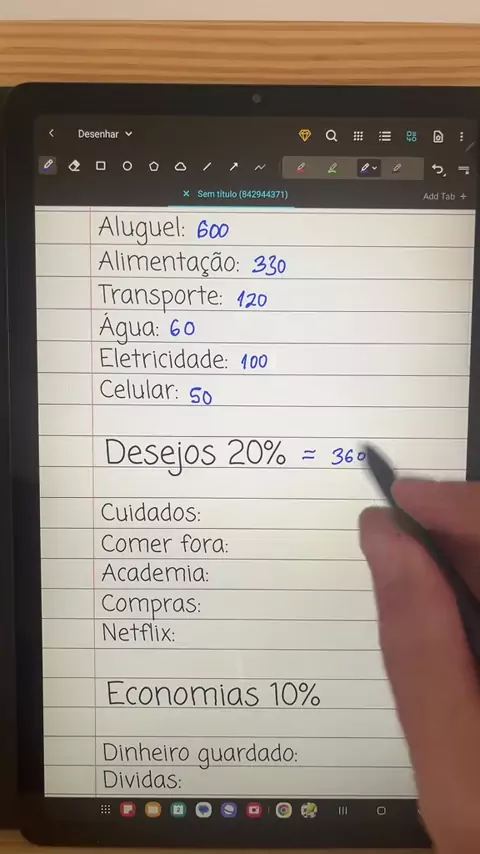 Desenhar
Sem título (842944371)
Add Tab +
Aluguel: 600
Alimentação: 330
Transporte: 120
Água: 60
Eletricidade: 100
Celular: 50
Desejos 20% = 360
Cuidados:
Comer fora:
Academia:
Compras:
Netflix:
Economias 10%
Dinheiro guardado:
Dividas: